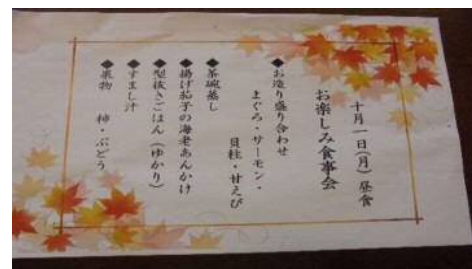 十月一日(月) 昼食
お楽しみ食事会
◆お造り盛り合わせ
まぐろ・サーモン・
貝柱・甘えび
◆茶碗蒸し
◆揚げ茄子の海老あんかけ
◆型抜きごはん(ゆかり)
◆すまし汁
◆果物 柿・ぶどう